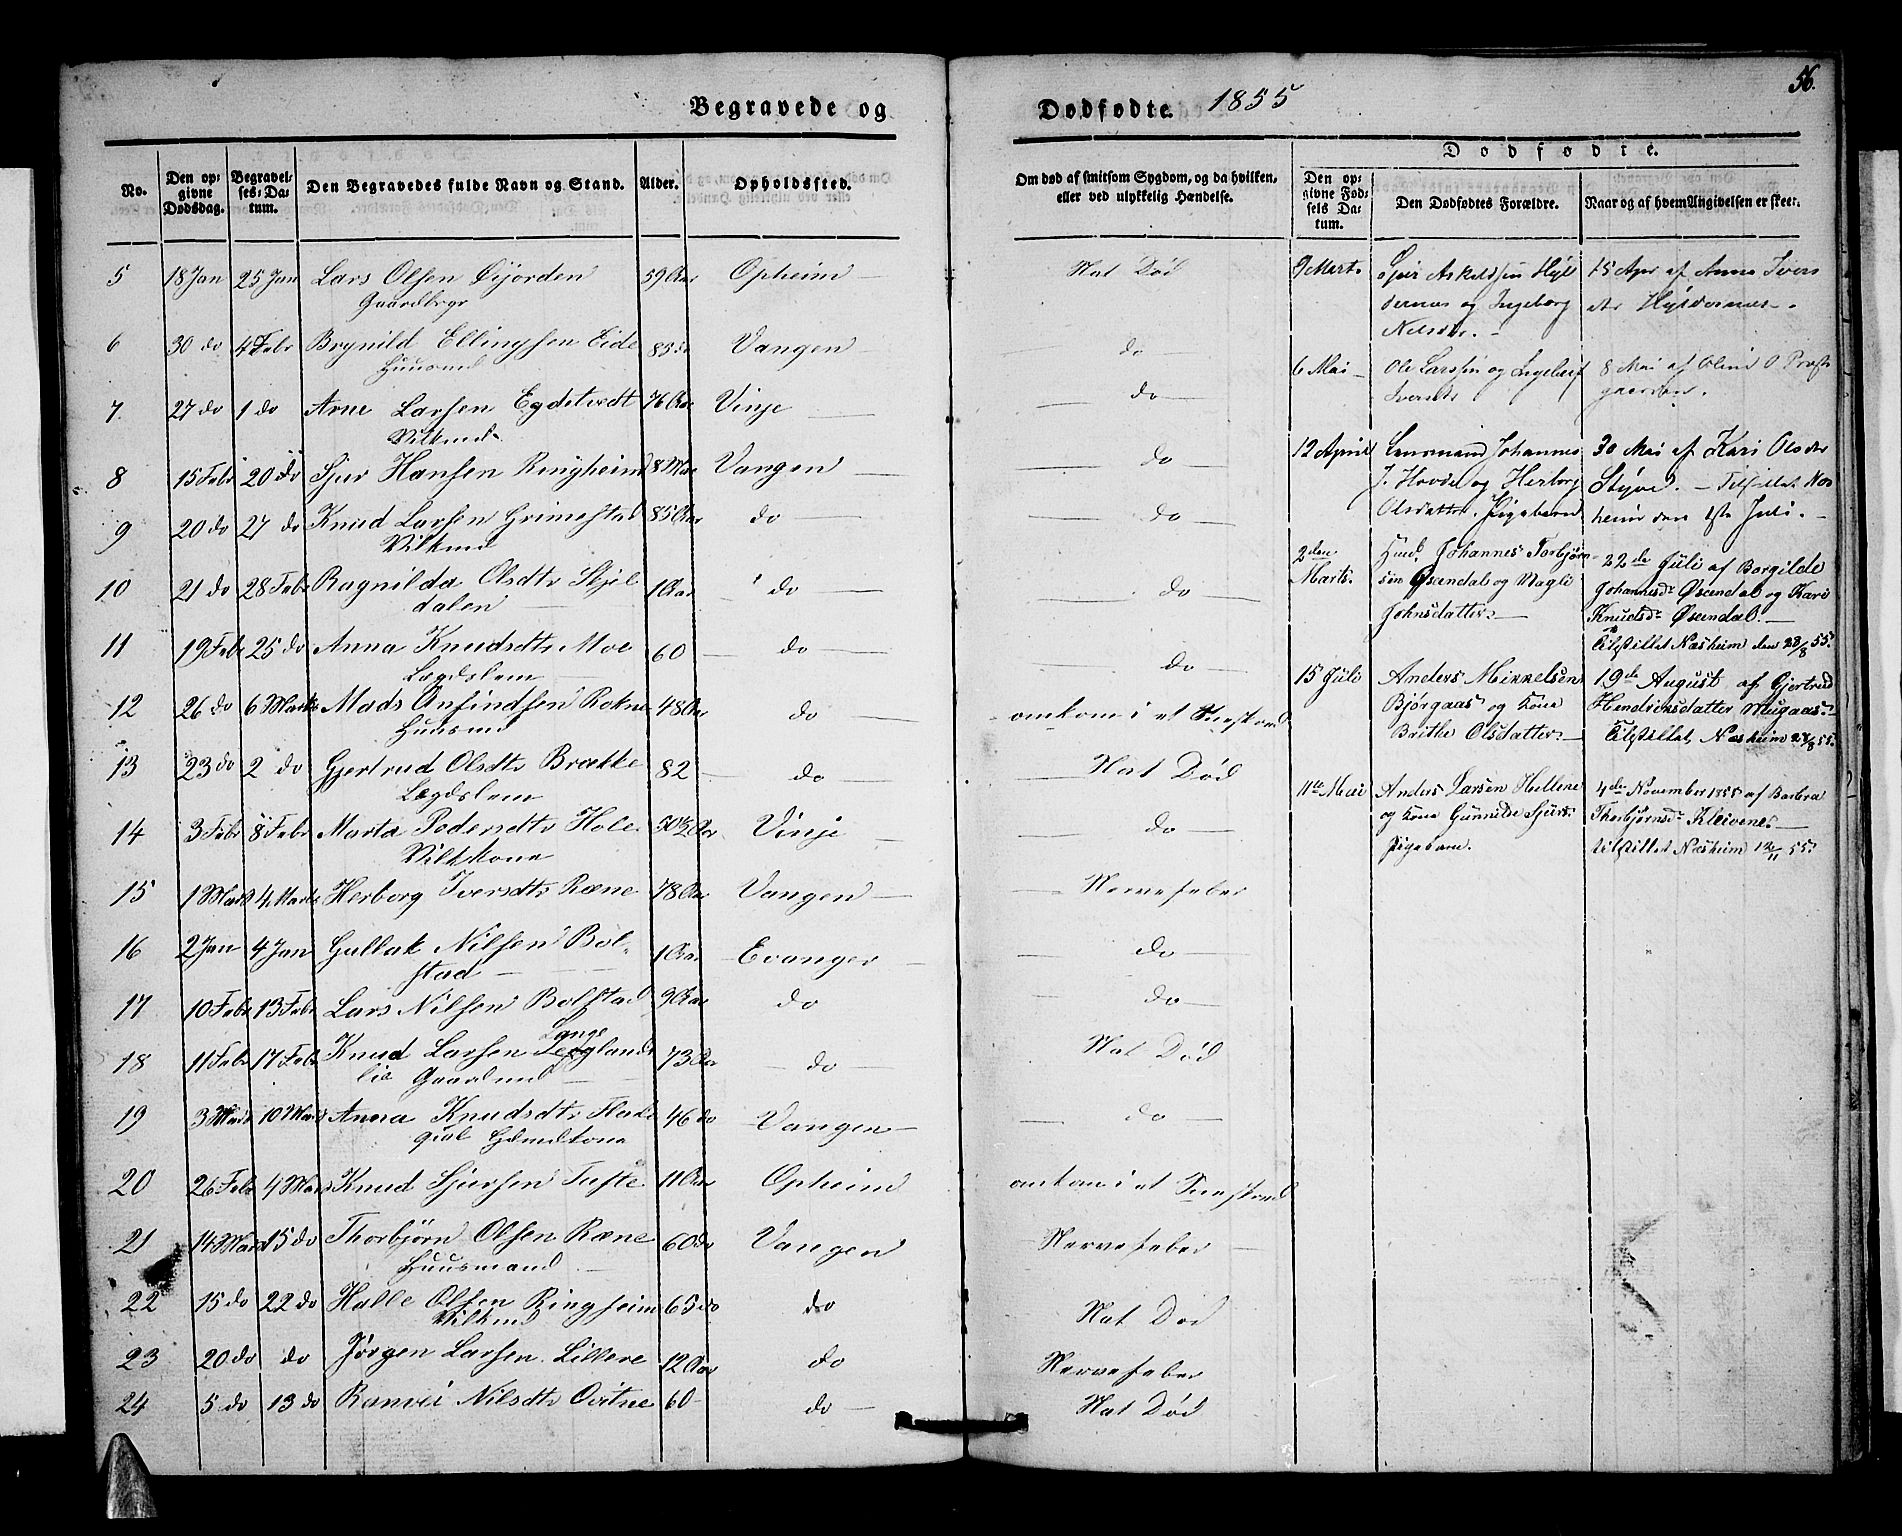 56.
Begravede og
Dødfødte. 1855
No.
Den opgivne Dødsdag.
Begravelses-Datum.
Den Begravedes fulde Navn og Stand.
Alder.
Opholdssted.
Om død af smitsom Sygdom, og da hvilken, eller ved ulykkelig Hændelse.
Dødfødte.
Den opgivne Fødsels Datum.
Den Dødfødtes Forældre.
Naar og af hvem Angivelsen er skeet.
5 18 Jan 25 Jan Lars Olsen 59 Aar Opheim — Nat Død
6 30 do 4 Febr Brynild Ellingsen Eide 83 do Vangen — do —
Huusmd
7. 27 do 1 do Arne Larsen Egdetvedt 76 Aar Vinje — do —
Vilkmd.
8 15 Febr 20 do Sjur Hansen Ringheim 8 Vangen — do —
9 20 do 27 do Knud Larsen Grimestad 85 Aar do — do —
Vilkmd
10 21 do 28 Febr Ragnilda Olsdtr Skjel 1 Aar do — do —
dalen —
11 19 Febr 25 do Anna Knudsdtr Moe 60 — do — do —
Lægdslem —
12 26 do 6 Marts Mads Anfindsen Rokne 48 Aar do — omkom i et Sneskred
Huusmd
13 23 do 2 do Gjertrud Olsdtr Brække 82 — do — Nat Død
Lægdslem
14 3 Febr 8 Febr Marta Pedersdtr Hole 50½ Aar Vinje — do —
Vilkkone
15 1 Marts 4 Marts Herborg Iversdtr Ræne 78 Aar Vangen — Nervefeber
16 2 Jan 4 Jan Gullak Nilsen Bol- 1 Aar Evanger — do —
stad —
17 10 Febr 13 Febr Lars Nilsen Bolstad 9 Aar do — do —
Lange
18 11 Febr 17 Febr Knud Larsen 73 Aar — do — Nat Død
lie Gaardmd —
19 3 Marts 10 Marts Anna Knudsdtr 46 do Vangen — do —
20 26 Febr 4 Marts Knud Sjursen Tufte 11 Aar Opheim omkom i et Sneskred
21 14 Marts 15 do Thorbjørn Olsen Ræne 60 do Vangen Nervefeber —
Huusmand —
22 15 do 22 do Halle Olsen Ringheim 65 do do Nat Død
Vilkmd
23 20 do do Jørgen Larsen Lillere 12 Aar do Nervefeber
24 5 do 13 do Ranvei Nilsdtr 60 — do — Nat Død
9 Marts Askeldsen Hyl 15 Apr af Anna Ivers
dernæs og Ingeborg dtr Hyldernæs —
Nilsdtr. —
6 Mai — Ole Larssen og Ingeborg 8 Mai af O Præste
Iversdtr gaarden.
12 April Lensmand Johannes 30 Mai af Kari Olsdtr
J. Hovda og Herborg Styve. — Tilstillet Næs
Olsdatter. Pigebarn heim den 1ste Juli. —
2den Marts Huusmd Johannes Torbjørn- 22de Juli af Borgilde
sen Øsendal og Magli Johannesdr Øsendal og Kari
Johnsdatter — Knudsdr Øsendal. —
Tilstillet Næsheim den 28/8 55.
15 Juli Anders Mikkelsen 19de August af Gjertrud
Bjørgaas og Kone Hendriksdatter Mugaas. —
Brithe Olsdatter — Tilstillet Næsheim 28/8 55.
11te Mai Anders Larsen Hellene 4de November 1855 af Barbra
og Kone Gunnilde Sjurs- Thorbjørnsdr Kleivene —
Pigebarn. tilstillet Næsheim 12/11 55.